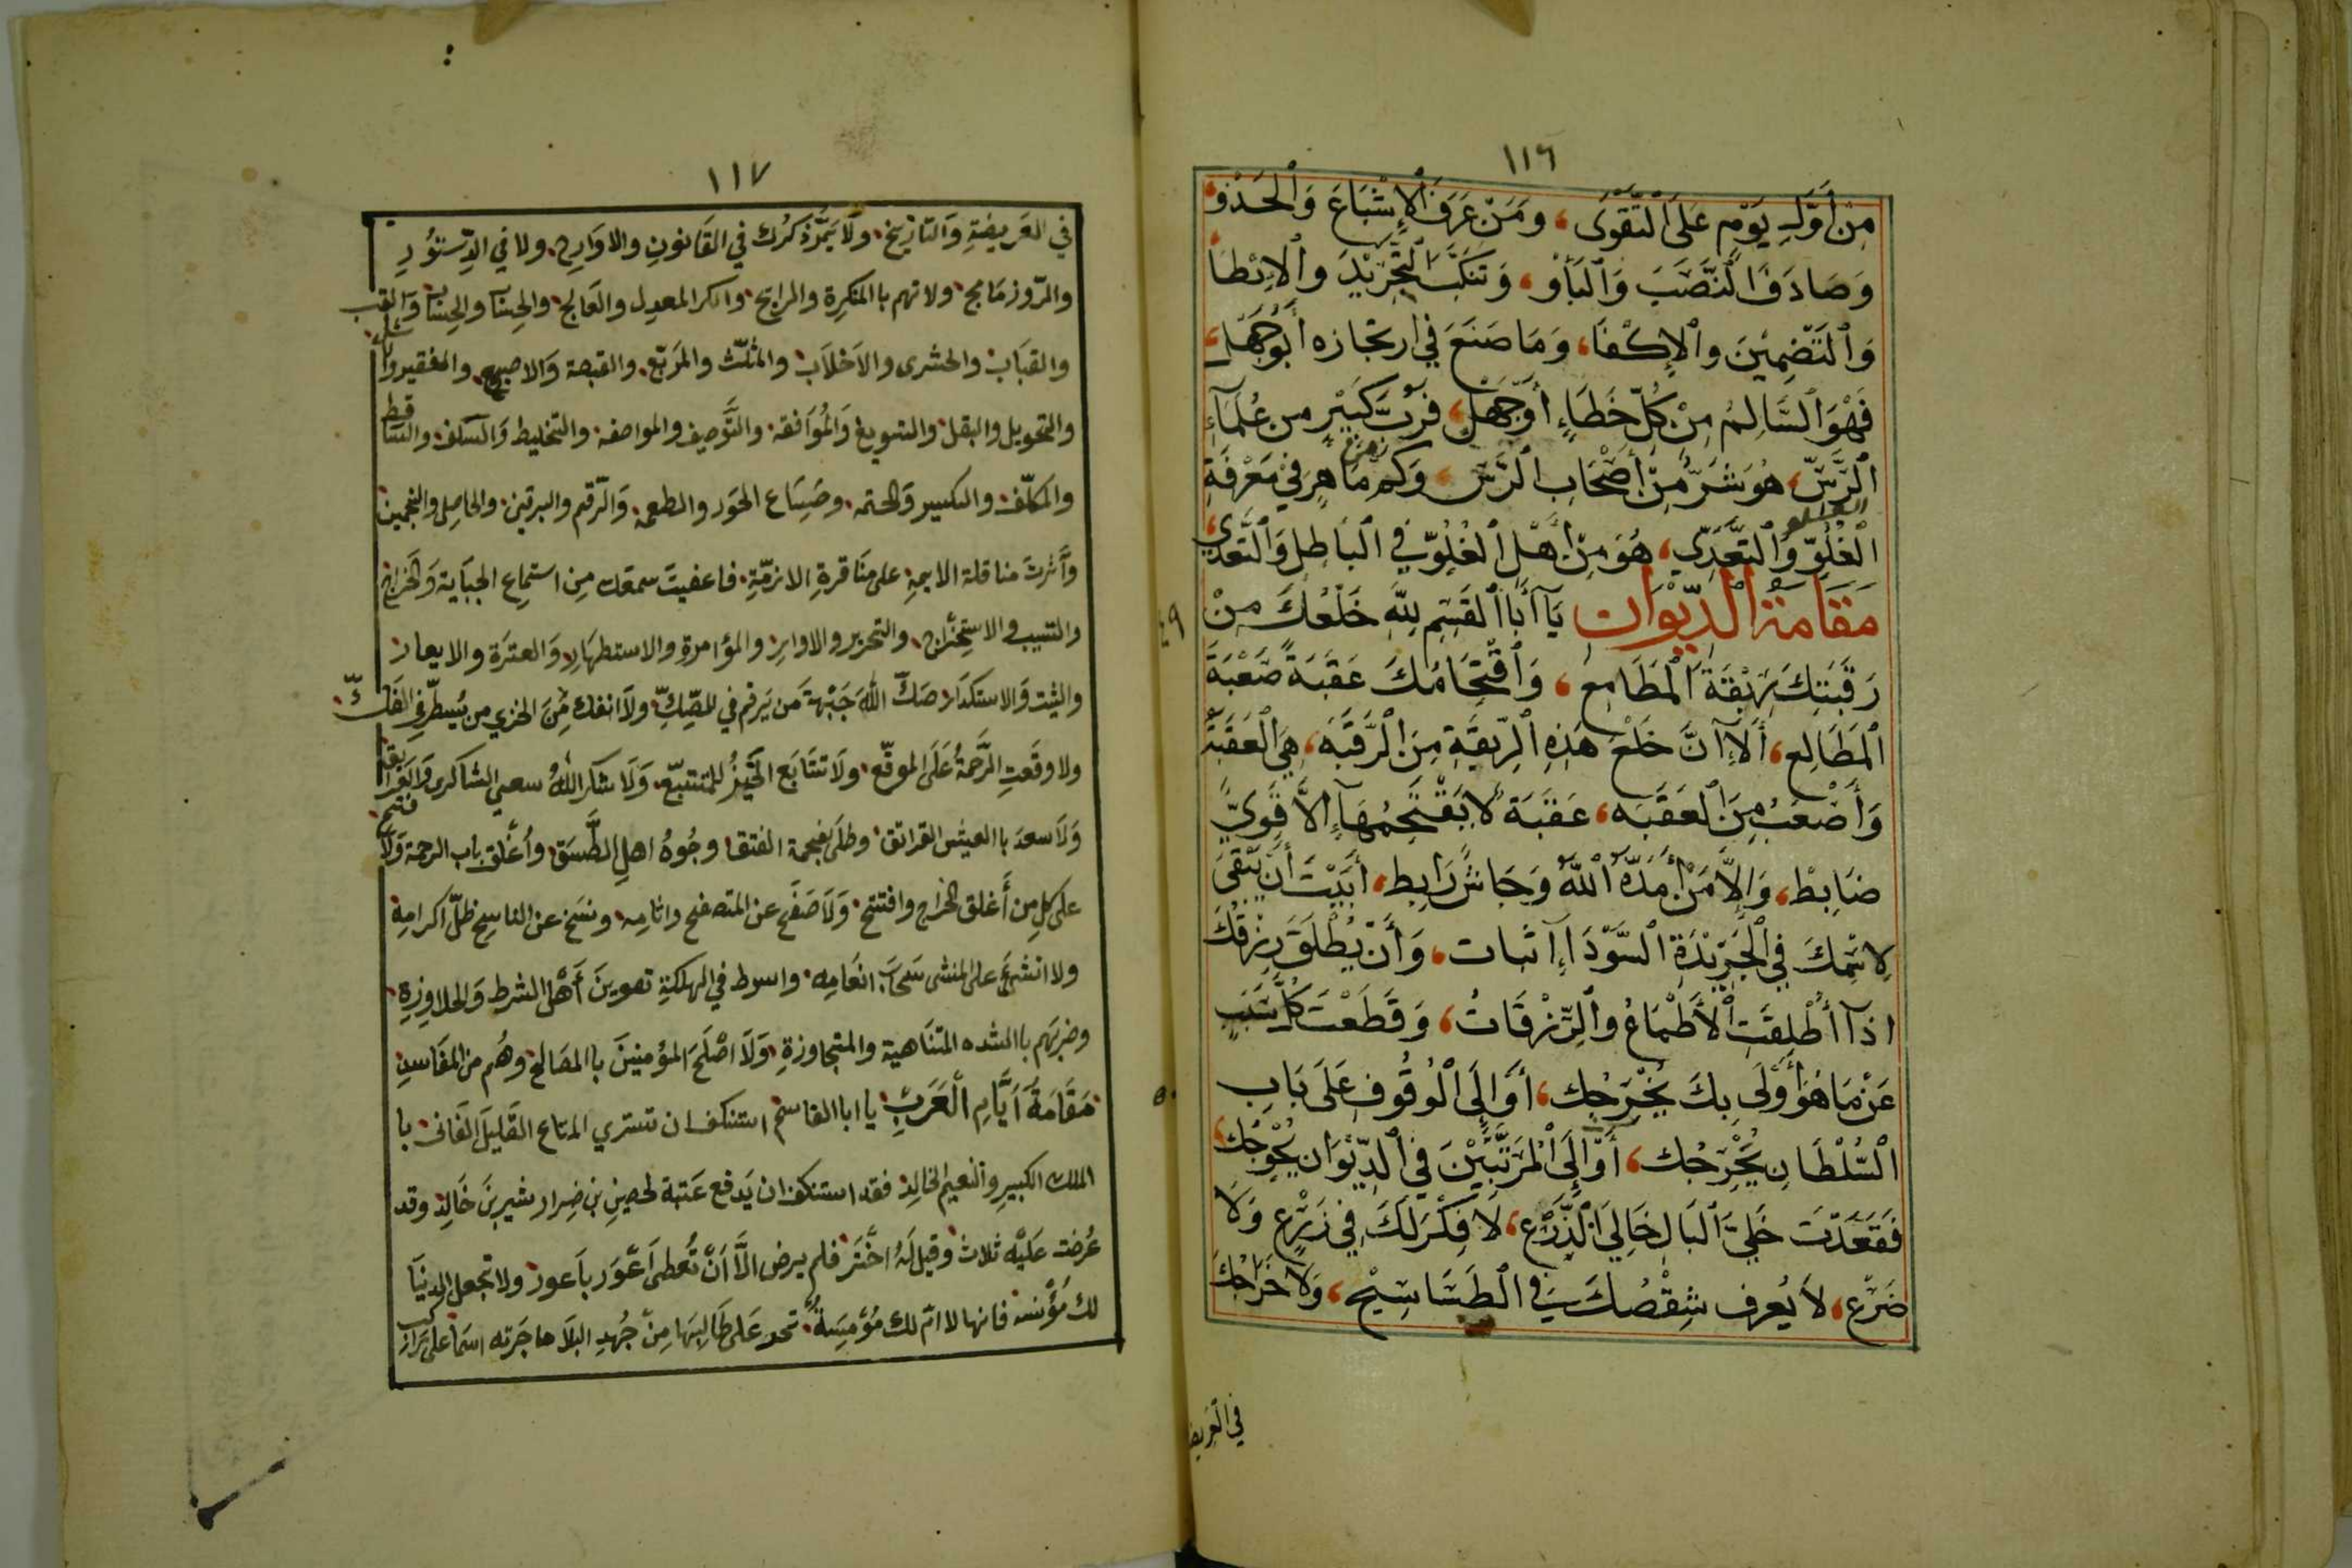 ١١٦
مِنْ أَوَّلِ يَوْمٍ عَلَى ٱلتَّقْوَى، وَمَنْ عَرَفَ ٱلْإِشْبَاعَ وَٱلْحَذْوَ،
وَصَادَفَ ٱلنَّصَبَ وَٱلْبَأْوَ، وَتَنَكَّبَ ٱلتَّجْرِيْدَ وٱلْاِيْطَا،
وَٱلتَّضْمِيْنَ وٱلْإِكْفَا، وَمَا صَنَعَ فِي ارتجازه أَبُوجَهْلٍ،
فَهْوَ ٱلسَّالِمُ مِنْ كُلِّ خَطَاءٍ أَوْجَهْلٍ، فَرُبَّ كَبِيْرٍ من عُلَمَآءِ
ٱلرَّسِّ، هُوَ شَرٌّ مِنْ أَصْحَابِ ٱلرَّسِّ، وَكم مَاهِرٍ فِيْ مَعْرْفَةِ
ٱلْغُلُوِّ وَٱلتَّعَدِّي، هُوَ مِنْ أَهْلِ ٱلْغُلُوِّ فِي ٱلْبَاطِلِ وَٱلتَّعَدِّي،
مَقَامَة الدِّيْوَان يَآ أَبَا ٱلْقَسِمِ لِلّٰهِ خَلْعُكَ مِنْ
رَقَبَتِكَ رِبْقَةَ ٱلْمَطَامِعِ، وَٱقْتِحَامُكَ عَقَبَةً صَعْبَةَ
ٱلْمَطَالِعِ، أَلَآ اَنَّ خَلْعَ هَذِهِ ٱلرِّبْقَةِ مِنَ ٱلرَّقَبَه، هِيَ ٱلْعَقَبَةُ
وَأَصْعَبُ مِنَ ٱلْعَقَبَه، عَقَبَة لَا يَقْتَحِمُهَآ إِلَّا قَوِيٌّ
ضَابِطْ، وَإِلَّا مَنْ أَمَدَّهُ ٱللّٰهُ وَجَاشٌ رَابِط، أَبَيْتَ أَنْ يَبْقَىَ
لِاسْمِكَ فِي ٱلْجَرِيْدَةِ ٱلسَّوْدَآءِ اثبات، وَأَنْ يُطْلَقَ رِزْقُكَ
اذَآ أُطْلِقَتِ ٱلْأَطْمَاعُ وٱلرِّزْقَاتُ، وَقَطَعْتَ كُلَّ سَبَبٍ
عَنْ مَا هُوَ أَوْلَى بِكَ يُخْرِجُك، أَوْ إِلَى ٱلْوُقُوفِ عَلَى بَابِ
ٱلسُّلْطَانِ يُحْرِجُك، أَوْ إِلَى ٱلْمُرَتَّبِيْنَ فِي ٱلدِّيْوَانِ يُحْوِجُك،
فَقَعَدْتَ خَلِيَّ ٱلْبَالِ خَالِيَ ٱلذَّرْعِ، لَا فِكْرَ لَكَ فِي زَرْعٍ وَلَا
ضَرْعٍ، لَا يُعرف شِقْصُكَ فِي ٱلطَّسَاسِيْجِ، وَلَا خَرَاجُكَ
في العريضة
٤٩
٥٠
١١٧
في العَرِيضَةِ وَالتاريخ، ولَا يَمُرُّ ذِكرُك في القَانونِ والاوَارِج، ولا في الدِّستُورِ
والرّوزنامج، ولا تهم بالمنكرة والرابح، والكر المعدل والفَالج، والجِنبَا والجُنبَا وَالقب
والقبَاب، والحشرى والاَخلَاب، والمثلّث والمَربّع، والقبصة وَالاصبع، والمفقير
والتحويل والبقل، والتسويغ وَالمُوَافقه، والتَّوصيف والمواصفه، والتخليط وَالسلف، والتسَاقط
والمكلّف، والتكسير وَالختمه، وضَيَاع الحَوز والطعمه، وَالرّقم والبرقين، والحاصِل والتخمين
وآثرتَ مناقلة الايمة على منَاقرةِ الازمّةِ، فاعفيتَ سمعك مِن استماع الجبَاية وَالخرَاج
والتسيب والاستخرَاج، والتحرير والاوايز والمؤامرةِ والاستظهَارِ، وَالعبرَة والايعاز
والثبت وَالاستكدَاد، صَكّ اللّٰه جَبْهةَ مَن يَرقم في للصِّكِّ، ولا انفك مِنَ الخزي من يُسطِّر في الفَكِّ،
ولا وقعَتِ الرَّحمةُ عَلَى الموقّع، ولَا تتَابَع الخَيْرُ للمتتبّع، وَلَا شكر اللّٰهُ سعي الشاكري وَالغرانقة
وَلَا سعدَ بالعيش الغرانق، وطلَى بفحمة الغتق وجُوهُ اهلِ الطَّسَق، وأغلق باب الرحمة وَلا فتح
على كلِ من أَغلق الخراج وافتتح، وَلَا صَفَح عن المتصفح واثامِه، ونسَخ عن الناسِخ ظلّ اكرامِهِ
ولا انشئ على المنشى سحَاب انعَامِه، واسوط في الهلكةِ تهوينَ أهل الشرط وَالجلاوزةِ،
وضربَهم بالمشده المتنَاهية والمتجاوزةِ، وَلَا اصْلَحَ المؤمنينَ بالمصَالح، وهُم من المفَاسدِ
مَقَامَةُ أيَّامِ الْعَرَبِ، يا ابا القاسم استنكف ان تشتري المتاع القَليل الفَانى، با
الملك الكبيرِ والنعيم الخالِدِ، فقد استنكف ان يَدفع عَتبة لحصينِ بنِ ضِرار بشيرِ بنَ خَالِدْ وقد
عُرضت عَلَيْه ثلاث، وقيل لَهُ اخْتَر فلم يرض اِلَّا اَنْ تُعطىَ اَعْوَر باَعور، ولا تجعل الدنيَا
لك مؤنسه فانها لا امّ لك مُوْمِسَةٌ، تحد عَلى طَالِبِهَا مِنْ جُهدِ البلَا ما جَرته اسمَا على